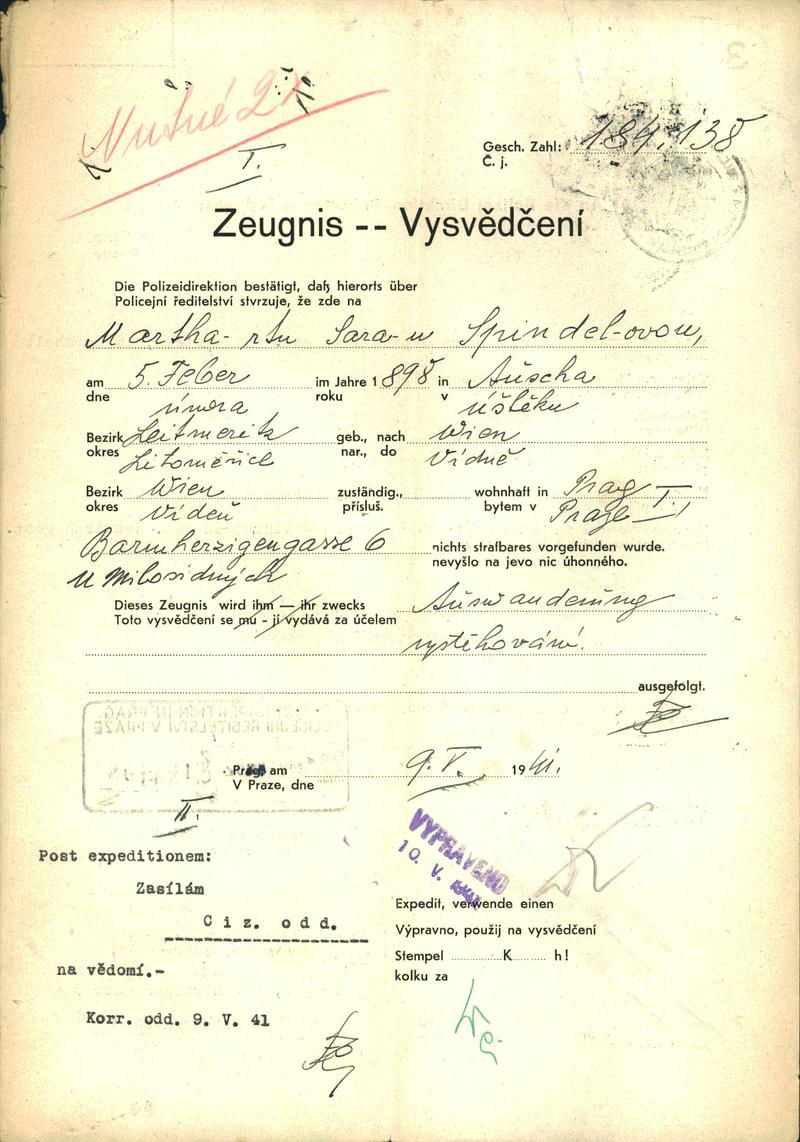 Nutné
I.
Gesch. Zahl: 184.138
Č. j.
Zeugnis -- Vysvědčení
Die Polizeidirektion bestätigt, daß hierorts über
Policejní ředitelství stvrzuje, že zde na
Martha- rtu Sara-u Spindel-ovou,
am 5. Feber im Jahre 1898 in Auscha
dne února roku v Úštěku
Bezirk Leitmeritz geb., nach Wien
okres Litoměřice nar., do Vídně
Bezirk Wien zuständig., wohnhaft in Prag I.
okres Vídeň přísluš. bytem v Praze I
Barmherzigengasse 6 nichts strafbares vorgefunden wurde.
U Milosrdných nevyšlo na jevo nic úhonného.
Dieses Zeugnis wird ihm — ihr zwecks Auswanderung
Toto vysvědčení se mu - jí vydává za účelem
vystěhování.
ausgefolgt.
POLIZEIDIREKTION IN PRAG
POLICEJNÍ ŘEDITELSTVÍ V PRAZE
Prag am 9. V. 1941.
V Praze, dne
II.
Post expeditionem:
Zasílám
Ciz. odd.
na vědomí.-
Korr. odd. 9. V. 41
VYPRAVENO
10. V. 1941
Expedit, verwende einen
Výpravno, použij na vysvědčení
Stempel K h!
kolku za